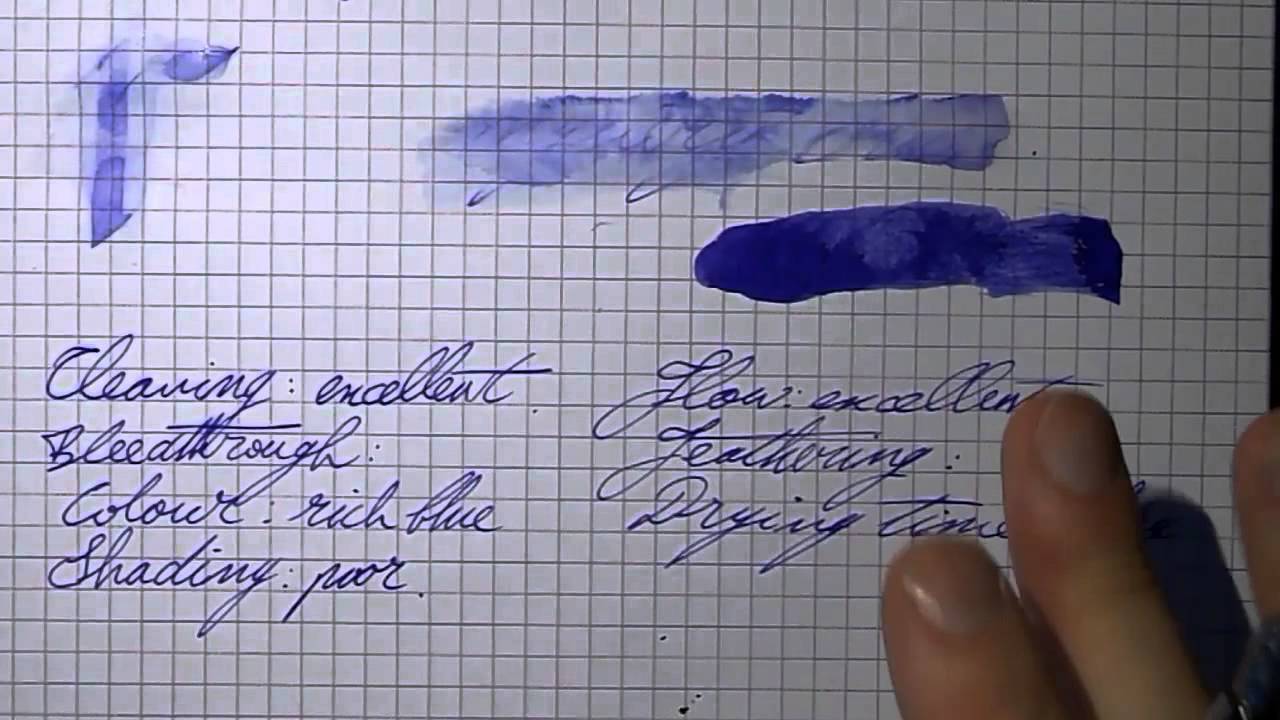 Cleaning: excellent.
Bleedthrough:
Colour: rich blue
Shading: poor.
Flow: excellent
Feathering:
Drying time